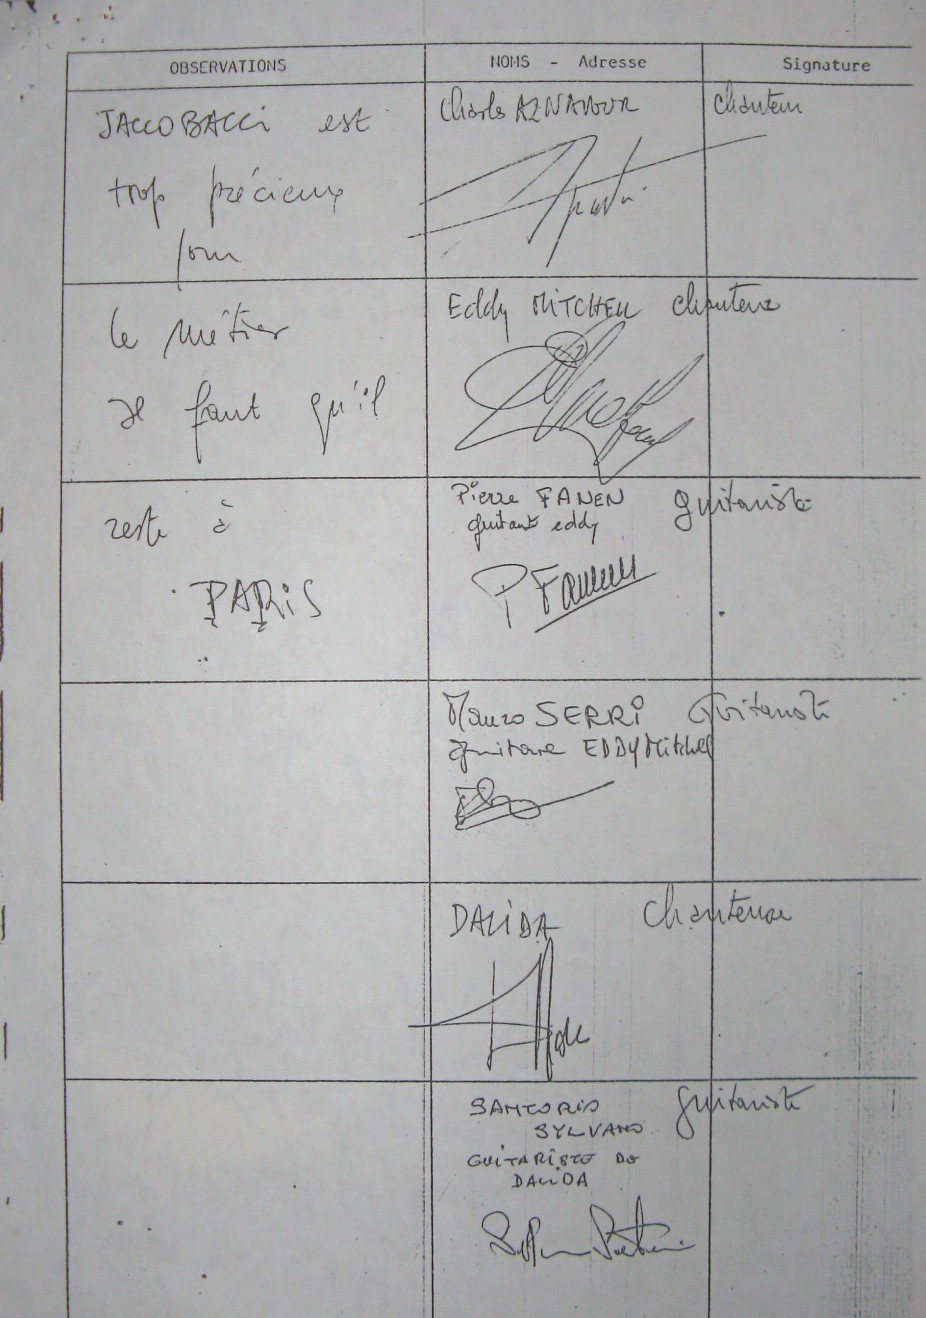 OBSERVATIONS
NOMS - Adresse
Signature
JACCOBACCi est
trop précieux
pour
le métier
Il faut qu'il
reste à
PARiS
Charles AZNAVOUR chanteur
Eddy MiTCHELL chanteur
Pierre FANEN guitariste
guitariste eddy
P Fanen
Mauro SERRi Guitariste
guitare EDDY Mitchell
DALiDA Chanteuse
SANTORIO guitariste
SYLVANO
GUiTARiSTE DE
DALiDA